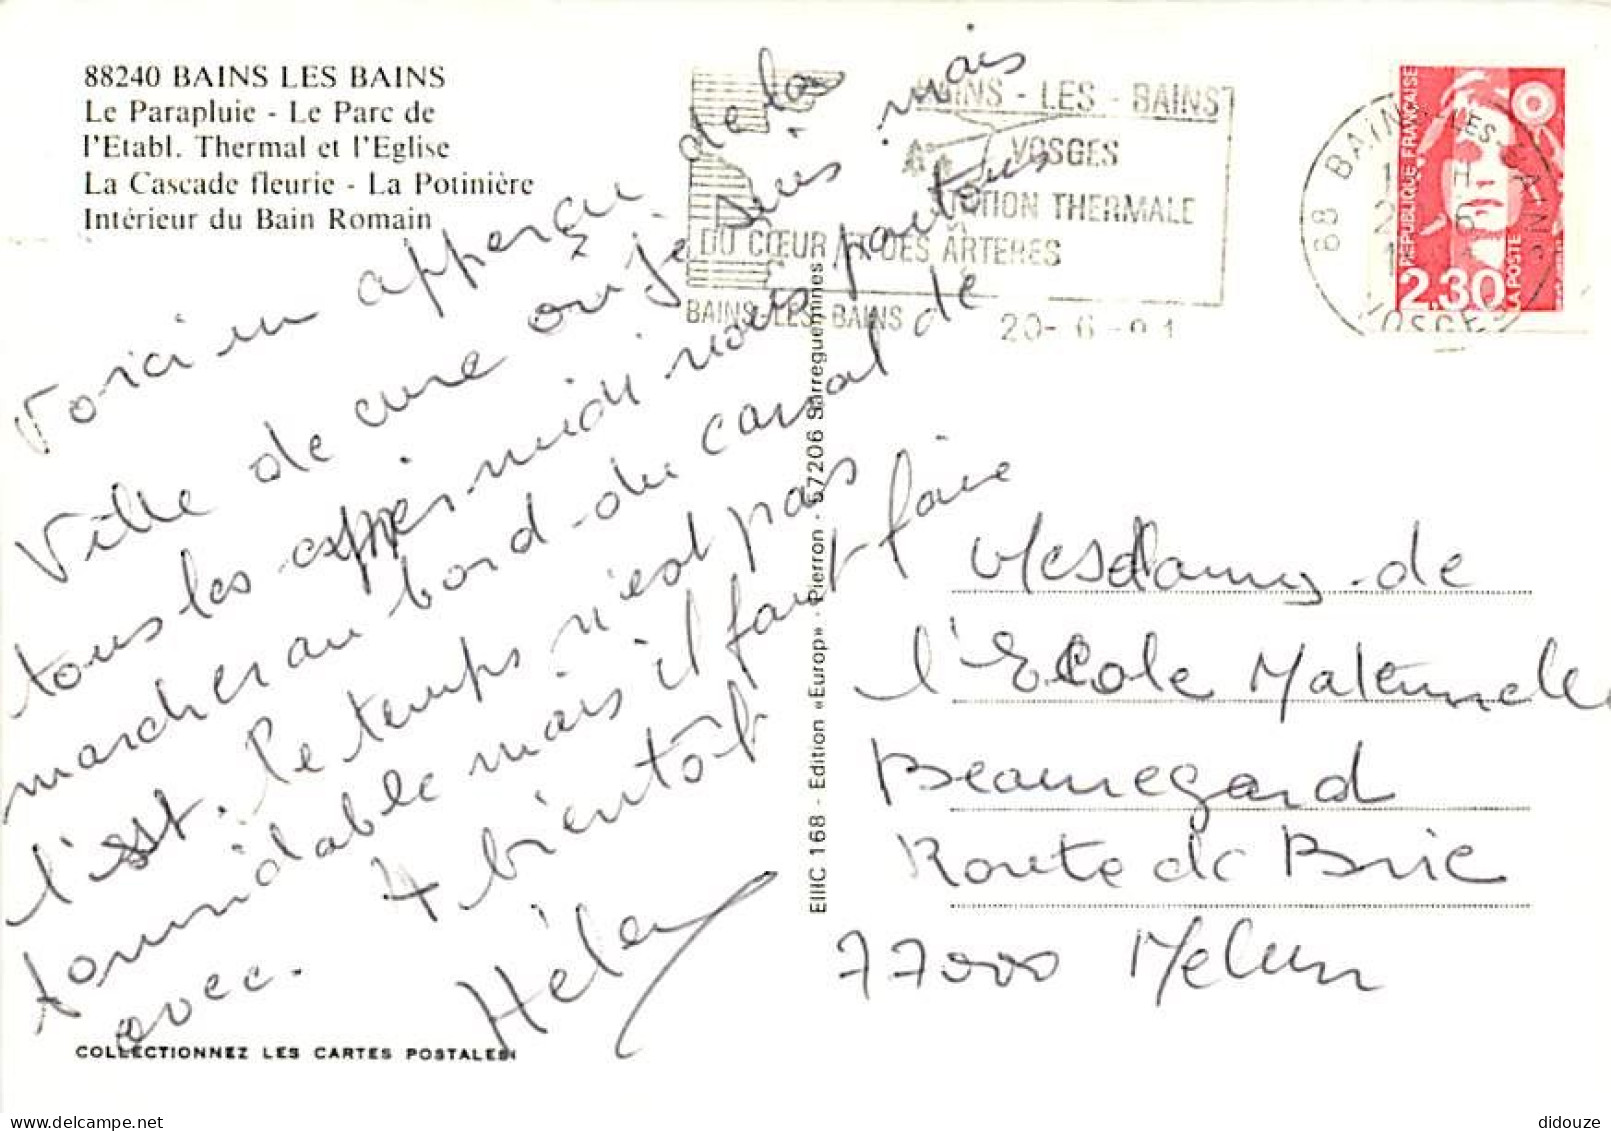 88240 BAINS LES BAINS
Le Parapluie - Le Parc de
l'Etabl. Thermal et l'Eglise
La Cascade fleurie - La Potinière
Intérieur du Bain Romain
BAINS - LES - BAINS
VOSGES
STATION THERMALE
DU CŒUR ET DES ARTERES
BAINS-LES-BAINS
20-6-91
88 BAINS-LES-BAINS
VOSGES
REPUBLIQUE FRANÇAISE
2,30
LA POSTE
Voici un apperçu de la
Ville de cure où je suis mais
tous les après midi nous partons
marcher au bord du canal de
l'est. le temps n'est pas
formidable mais il faut faire
avec. A bientôt
Hélène
EIIIC 168 - Edition «Europ» - Pierron - 57206 Sarreguemines
Mesdames de
l'Ecole Maternelle
Beauregard
Route de Brie
77000 Melun
COLLECTIONNEZ LES CARTES POSTALES!
didouze